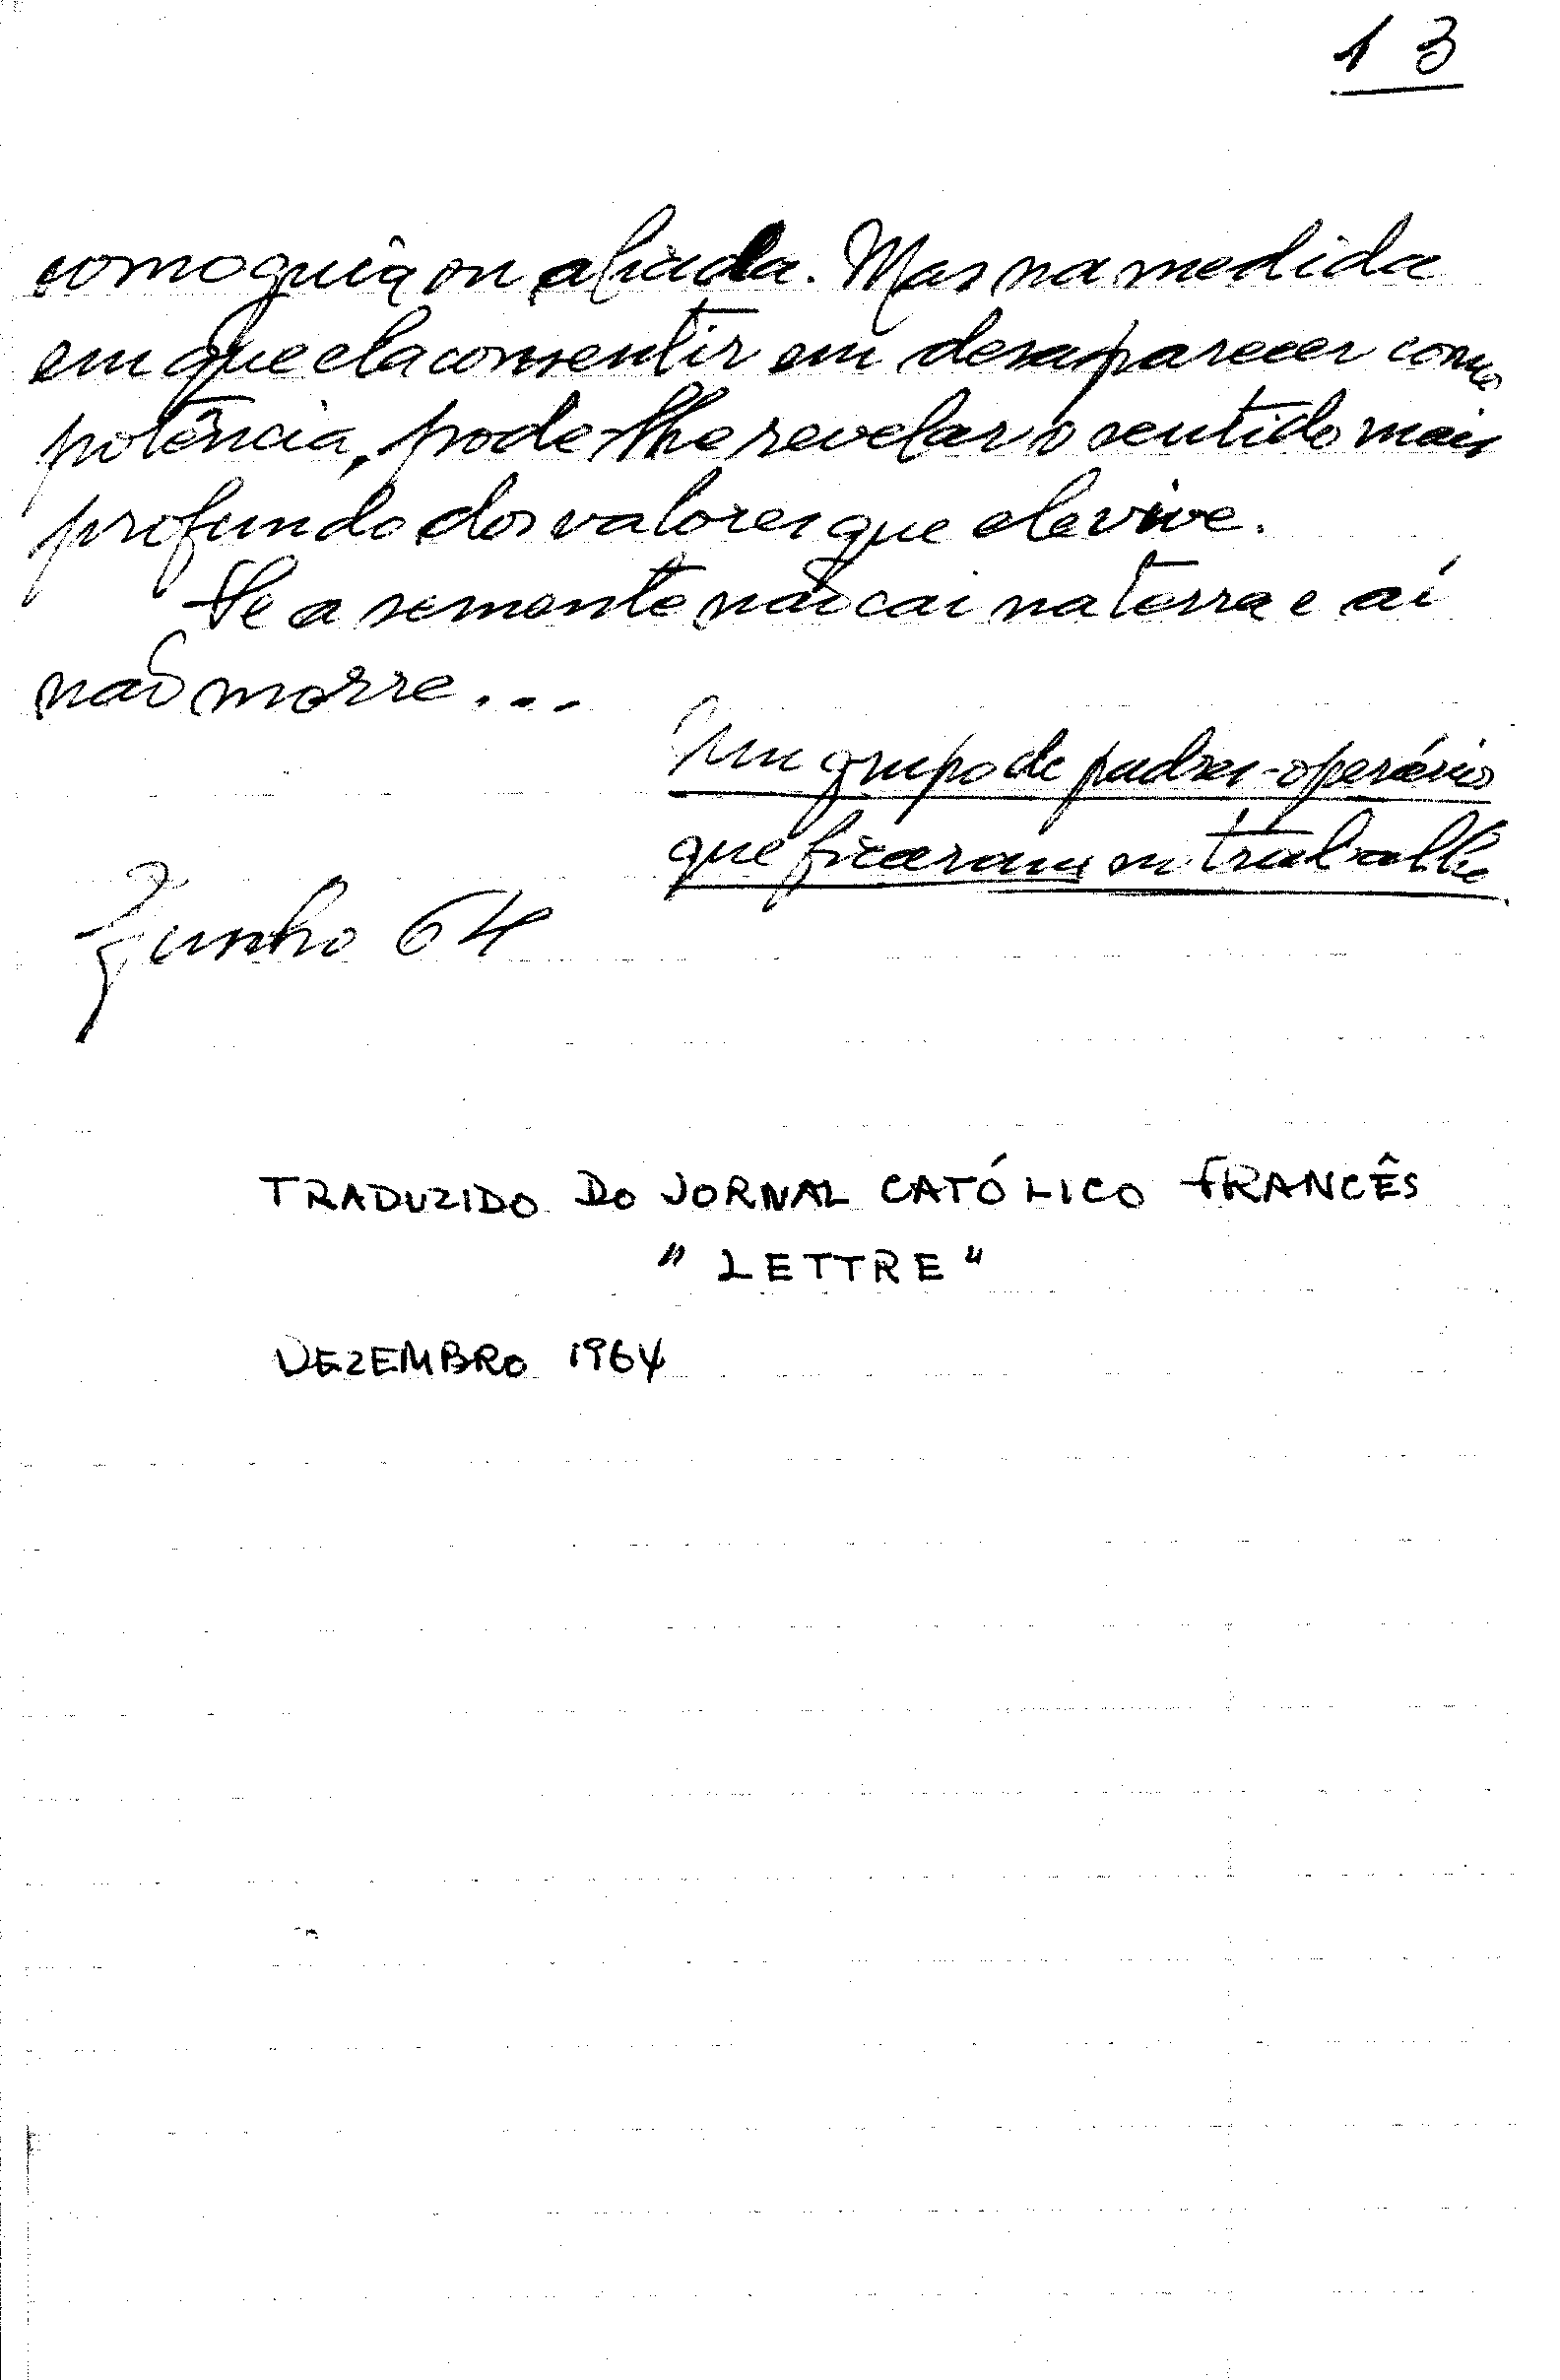 13
como guia ou aliada. Mas na medida
em que ela consentir em desaparecer como
potência, pode-lhe revelar o sentido mais
profundo dos valores que ele vive.
Se a semente não cai na terra e aí
não morre...
Um grupo de padres-operários
que ficaram no trabalho.
Junho 64
TRADUZIDO DO JORNAL CATÓLICO FRANCÊS
"LETTRE"
DEZEMBRO 1964